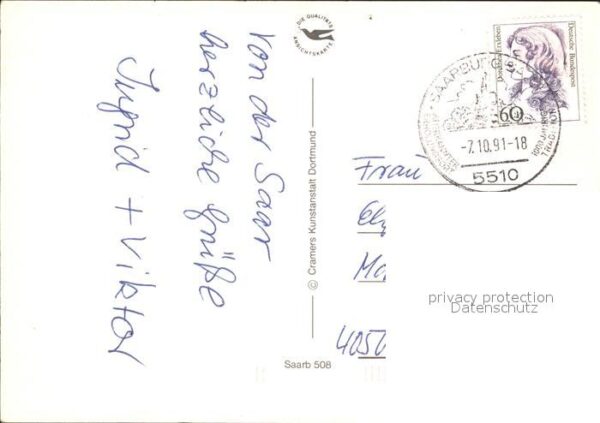 DIE QUALITÄTS
ANSICHTSKARTE
Von der Saar
herzliche Grüße
Ingrid + Viktor
© Cramers Kunstanstalt Dortmund
Saarb 508
Dorothea Erxleben
Deutsche Bundespost
60
SAARBURG
1000 JAHRE
TRADITION
-7.10.91-18
5510
Frau
privacy protection
Datenschutz